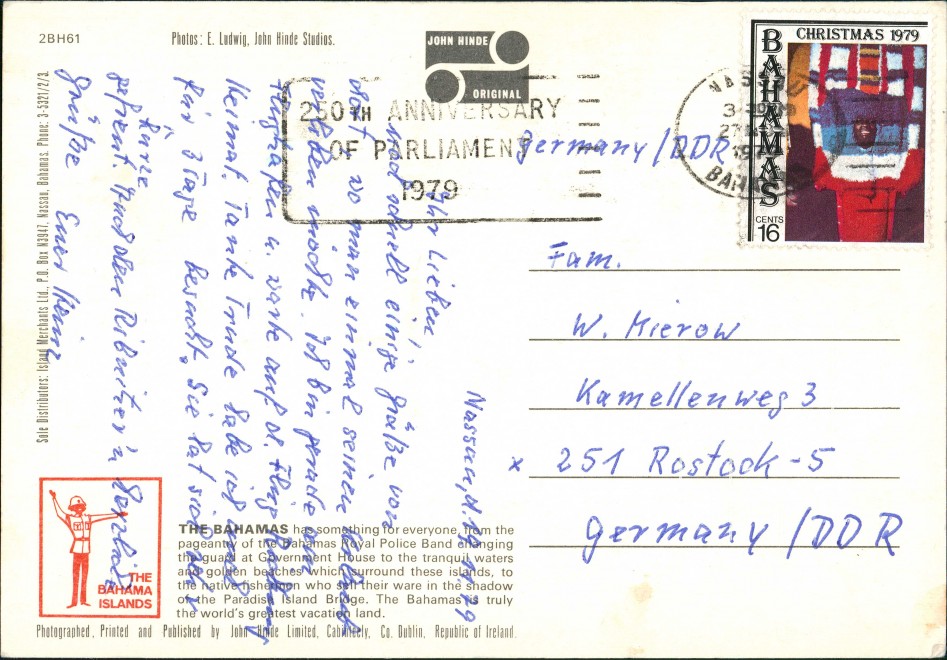 2BH61
Photos: E. Ludwig, John Hinde Studios.
JOHN HINDE
ORIGINAL
250TH ANNIVERSARY
OF PARLIAMENT
1979
NASSAU
BAHAMAS
CHRISTMAS 1979
BAHAMAS
CENTS
16
Germany/DDR
Fam.
W. Mierow
Kamellenweg 3
x 251 Rostock-5
Germany/DDR
Nassau, d.
Ihr Lieben!
Noch schnell einige Grüße von
dort wo man einmal seinen Urlaub
verleben möchte. Ich bin gerade am
Flughafen u. warte auf d. Flug Richtung
Heimat. Tante Trude habe ich
für 3 Tage besucht. Sie hat sich
gefreut. Und den Ribnitzern
Kürze
Grüße Euer Heinz
Sole Distributors: Island Merchants Ltd., P.O. Box N3947, Nassau, Bahamas. Phone: 3-5321/2/3.
THE
BAHAMA
ISLANDS
THE BAHAMAS has something for everyone, from the
pageantry of the Bahamas Royal Police Band changing
the guard at Government House to the tranquil waters
and golden beaches which surround these islands, to
the native fishermen who sell their ware in the shadow
of the Paradise Island Bridge. The Bahamas is truly
the world's greatest vacation land.
Photographed, Printed and Published by John Hinde Limited, Cabinteely, Co. Dublin, Republic of Ireland.